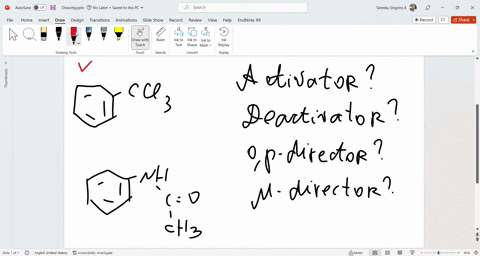 AutoSave
Drawing.pptx
No Label • Saved to this PC
Search
Sereda, Grigoriy A.
File Home Insert Draw Design Transitions Animations Slide Show Record Review View Help EndNote X9
Record Share
Draw with Touch
Ruler
Ink to Text
Ink to Shape
Ink to Math
Ink Replay
Drawing Tools
Touch
Stencils
Convert
Replay
Thumbnails
CCl3
Activator?
Deactivator?
O,p-director?
M-director?
NH
C=O
CH3
Slide 1 of 1
English (United States)
Accessibility: Investigate
Notes